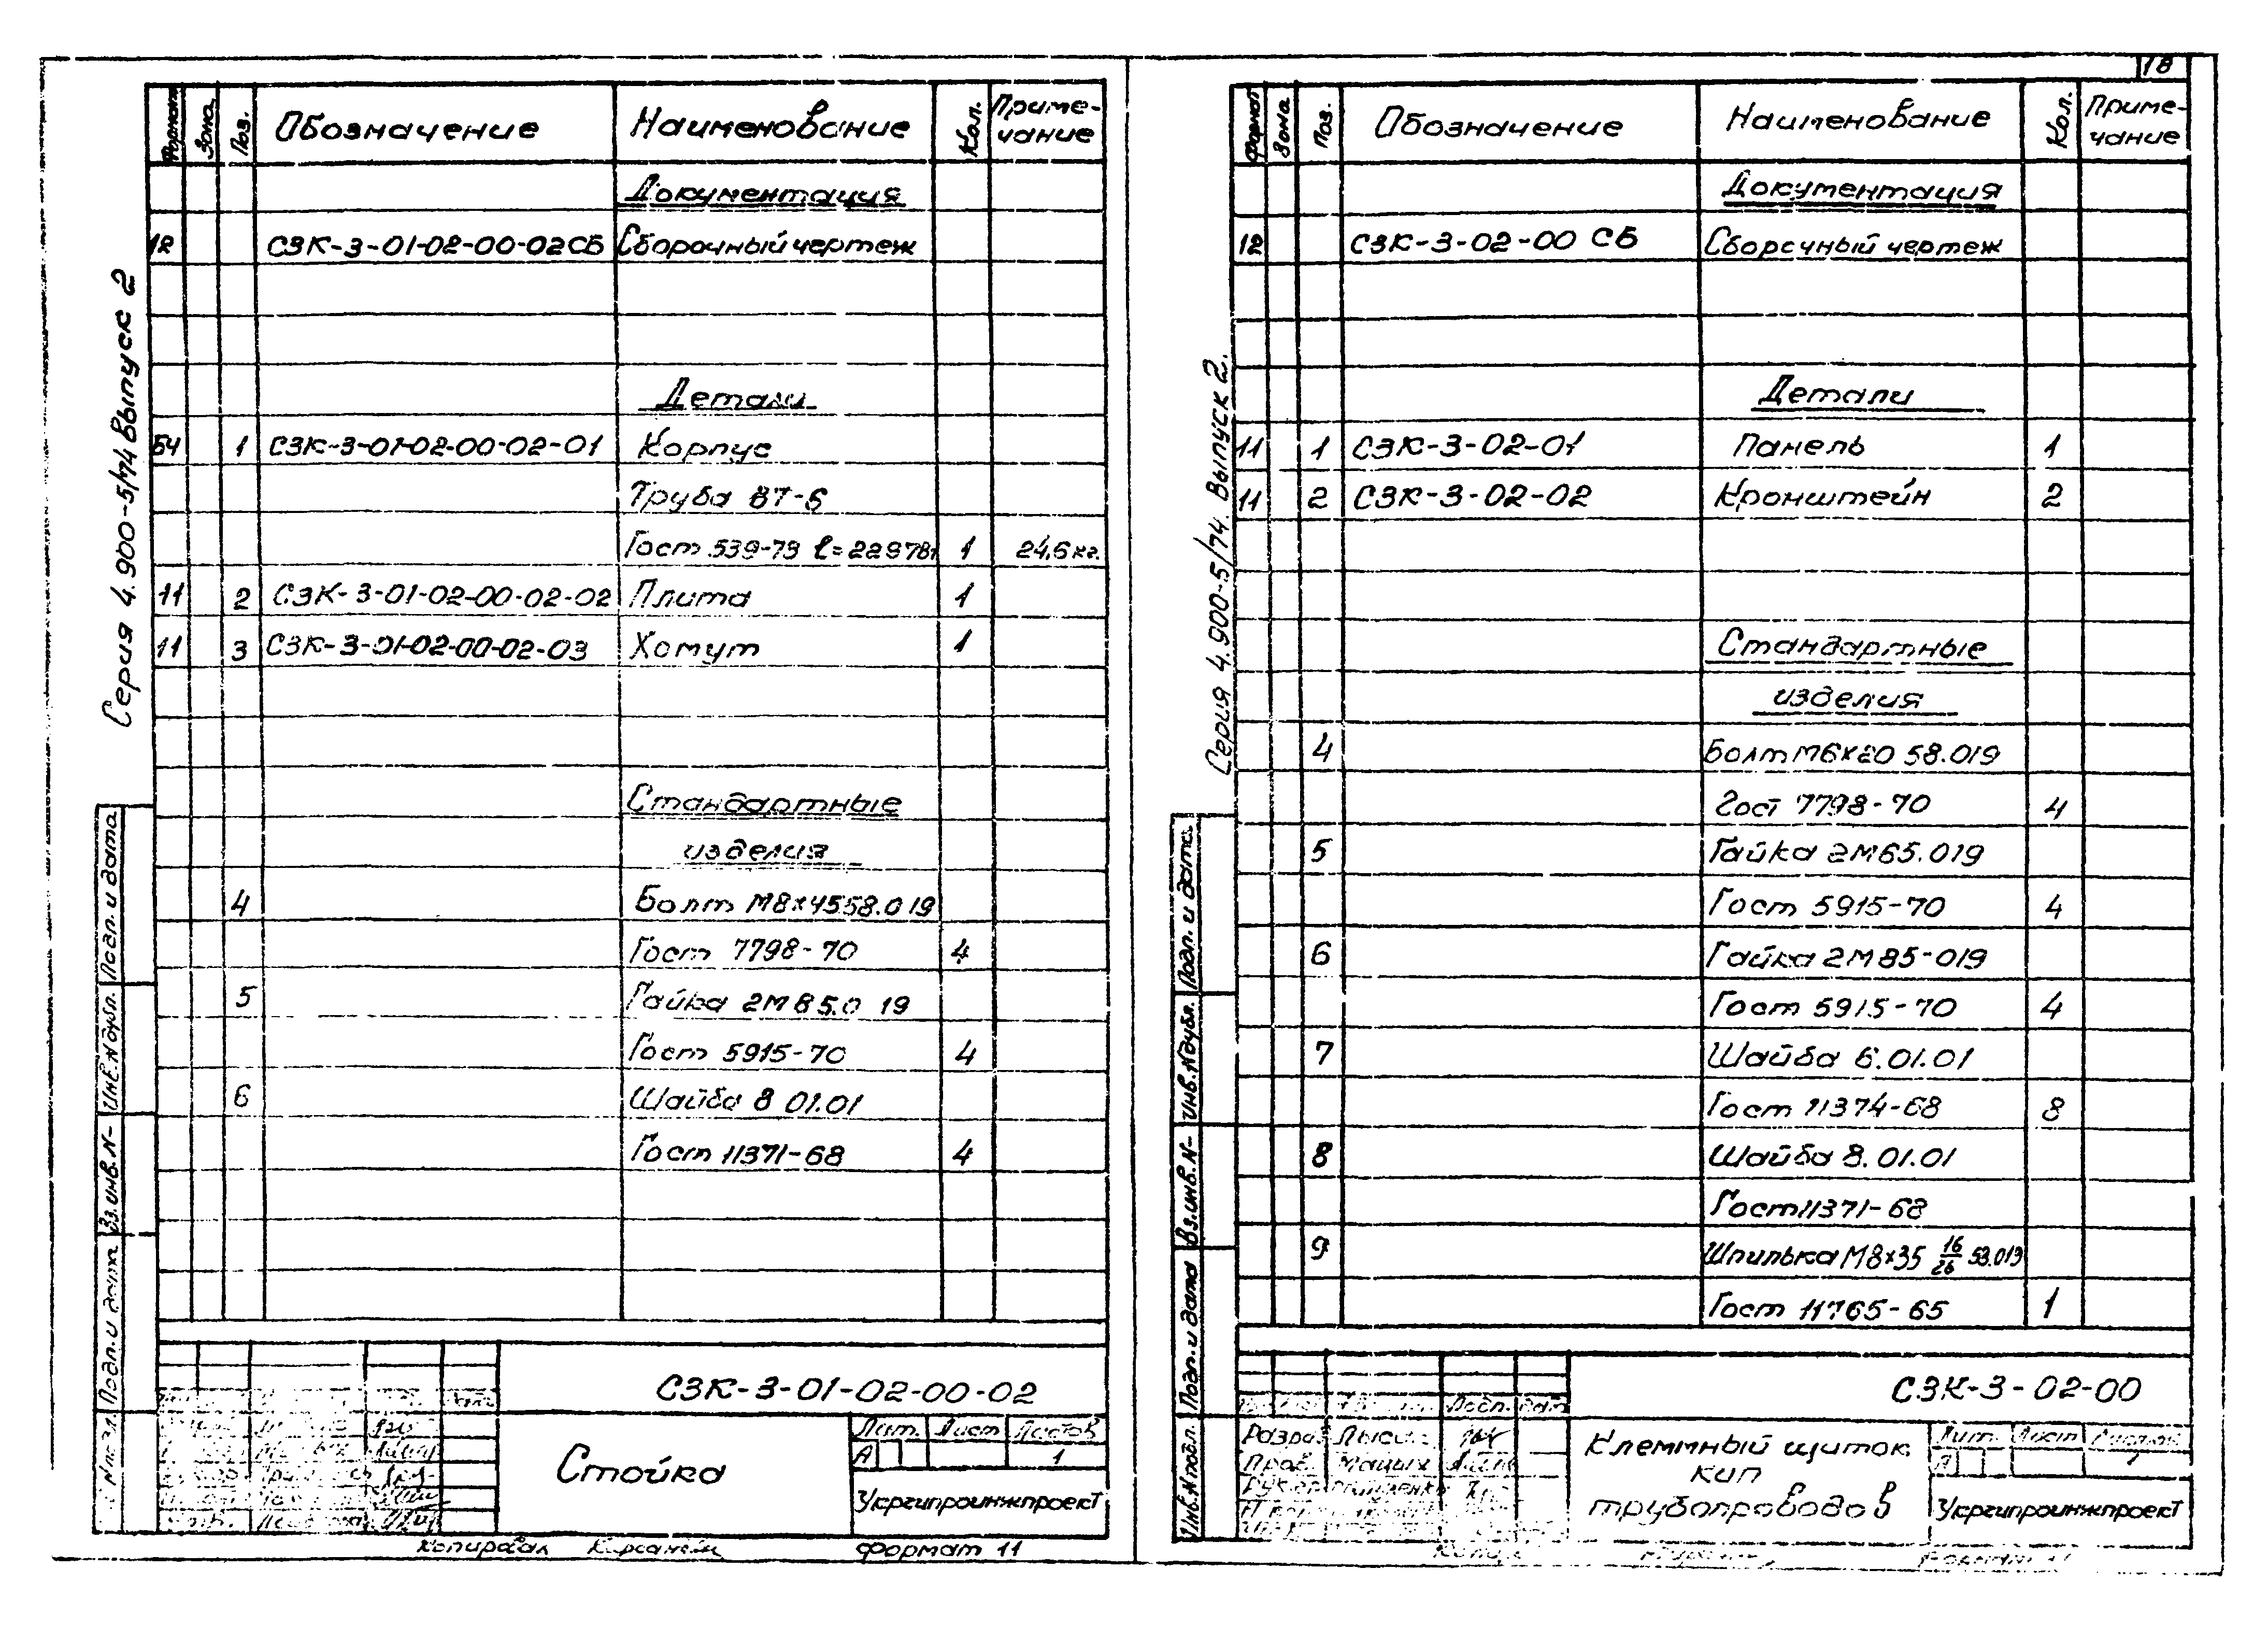 18
Серия 4.900-5/74 Выпуск 2
Формат Зона Поз. Обозначение Наименование Кол. Приме-
чание
Документация
12 СЗК-3-01-02-00-02СБ Сборочный чертеж
Детали
БЧ 1 СЗК-3-01-02-00-02-01 Корпус
Труба ВТ-6
Гост 539-73 1 24,6 кг.
11 2 СЗК-3-01-02-00-02-02 Плита 1
11 3 СЗК-3-01-02-00-02-03 Хомут 1
Стандартные
изделия
4 Болт М8×4558.019
Гост 7798-70 4
5 Гайка 2М85.0 19
Гост 5915-70 4
6 Шайба 8 01.01
Гост 11371-68 4
Подп. и дата
Инв.№дубл.
Вз.инв.№
Подп. и дата
СЗК-3-01-02-00-02
Стойка
Лит. Лист Листов
А 1
Укргипроинжпроект
Копировал
Формат 11
Серия 4.900-5/74. Выпуск 2.
Формат Зона Поз. Обозначение Наименование Кол. Приме-
чание
Документация
12 СЗК-3-02-00 СБ Сборочный чертеж
Детали
11 1 СЗК-3-02-01 Панель 1
11 2 СЗК-3-02-02 Кронштейн 2
Стандартные
изделия
4 Болт М6×20 58.019
Гост 7798-70 4
5 Гайка 2М65.019
Гост 5915-70 4
6 Гайка 2М85-019
Гост 5915-70 4
7 Шайба 6.01.01
Гост 11374-68 8
8 Шайба 8.01.01
Гост 11371-68
9 Шпилька М8×35 16/26 58.019
Гост 11765-65 1
Подп. и дата
Инв.№дубл.
Вз.инв.№
Подп. и дата
Инв.№подл.
СЗК-3-02-00
Клеммный щиток
КИП
трубопроводов
Лит. Лист Листов
Укргипроинжпроект